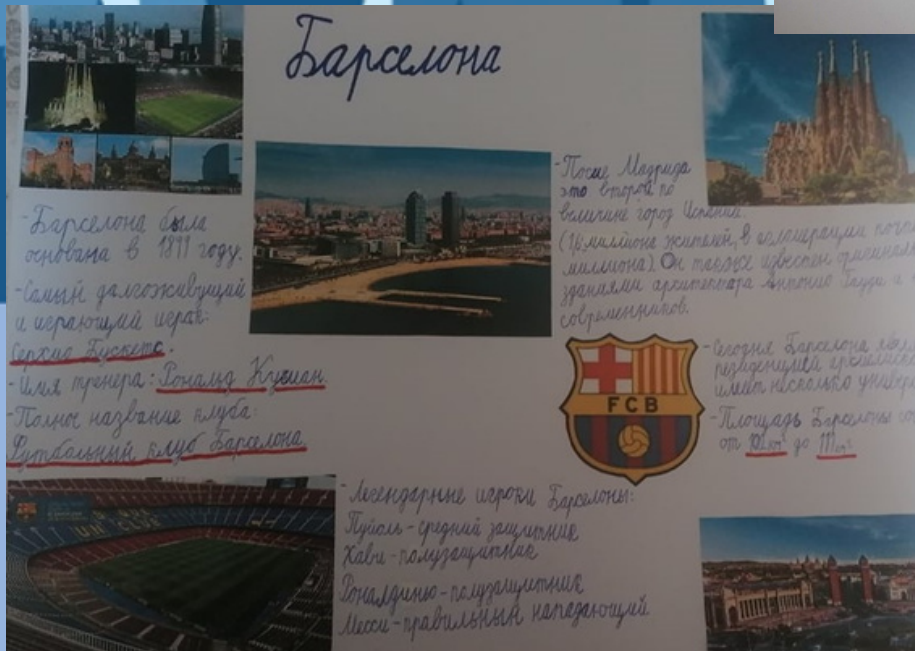 Барселона
-Барселона была
основана в 1899 году.
-Самый долгоживущий
и играющий играк:
Серхио Бускетс.
-Имя тренера: Рональд Куман.
-Полное название клуба:
Футбольный клуб Барселона
-После Мадрида
это второй по
величине город Испании.
(1,6 миллиона жителей, в агломерации почти
миллиона). Он также известен
зданиями архитектора Антонио Гауди и
современников.
FCB
-Сегодня Барселона
резиденцией
имеет несколько
-Площадь Барселоны
от до
-Легендарные игроки Барселоны:
Пуйоль-средний защитник
Хави-полузащитник
Роналдиньо-полузащитник
Месси-правильный нападающий